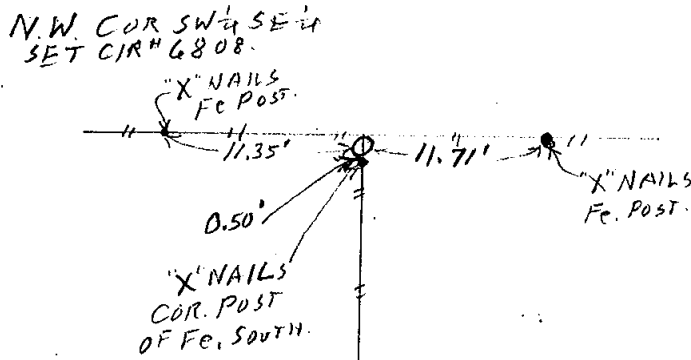 N.W. COR SW¼ SE¼
SET CIR# 6808.
"X" NAILS
Fe POST.
11.35'
11.71'
"X" NAILS
Fe. POST.
0.50'
"X" NAILS
COR. POST
OF Fe. SOUTH.